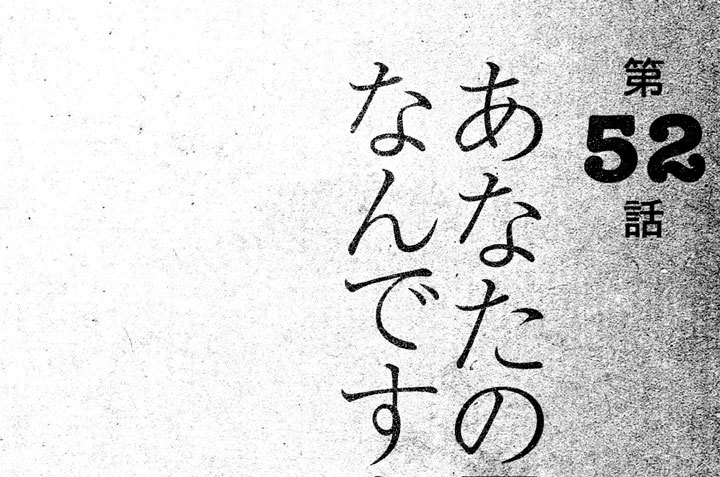 第52話
あなたの
なんです